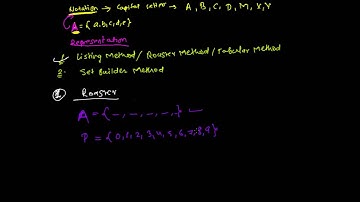 Notation → Capital letters → A, B, C, D, M, X, Y
A = {a, b, c, d, e}
Representation
1. Listing Method / Rouster Method / Tabular Method
2. Set Builder Method
① Rouster
A = { –, –, –, –, – }
P = {0, 1, 2, 3, 4, 5, 6, 7, 8, 9}